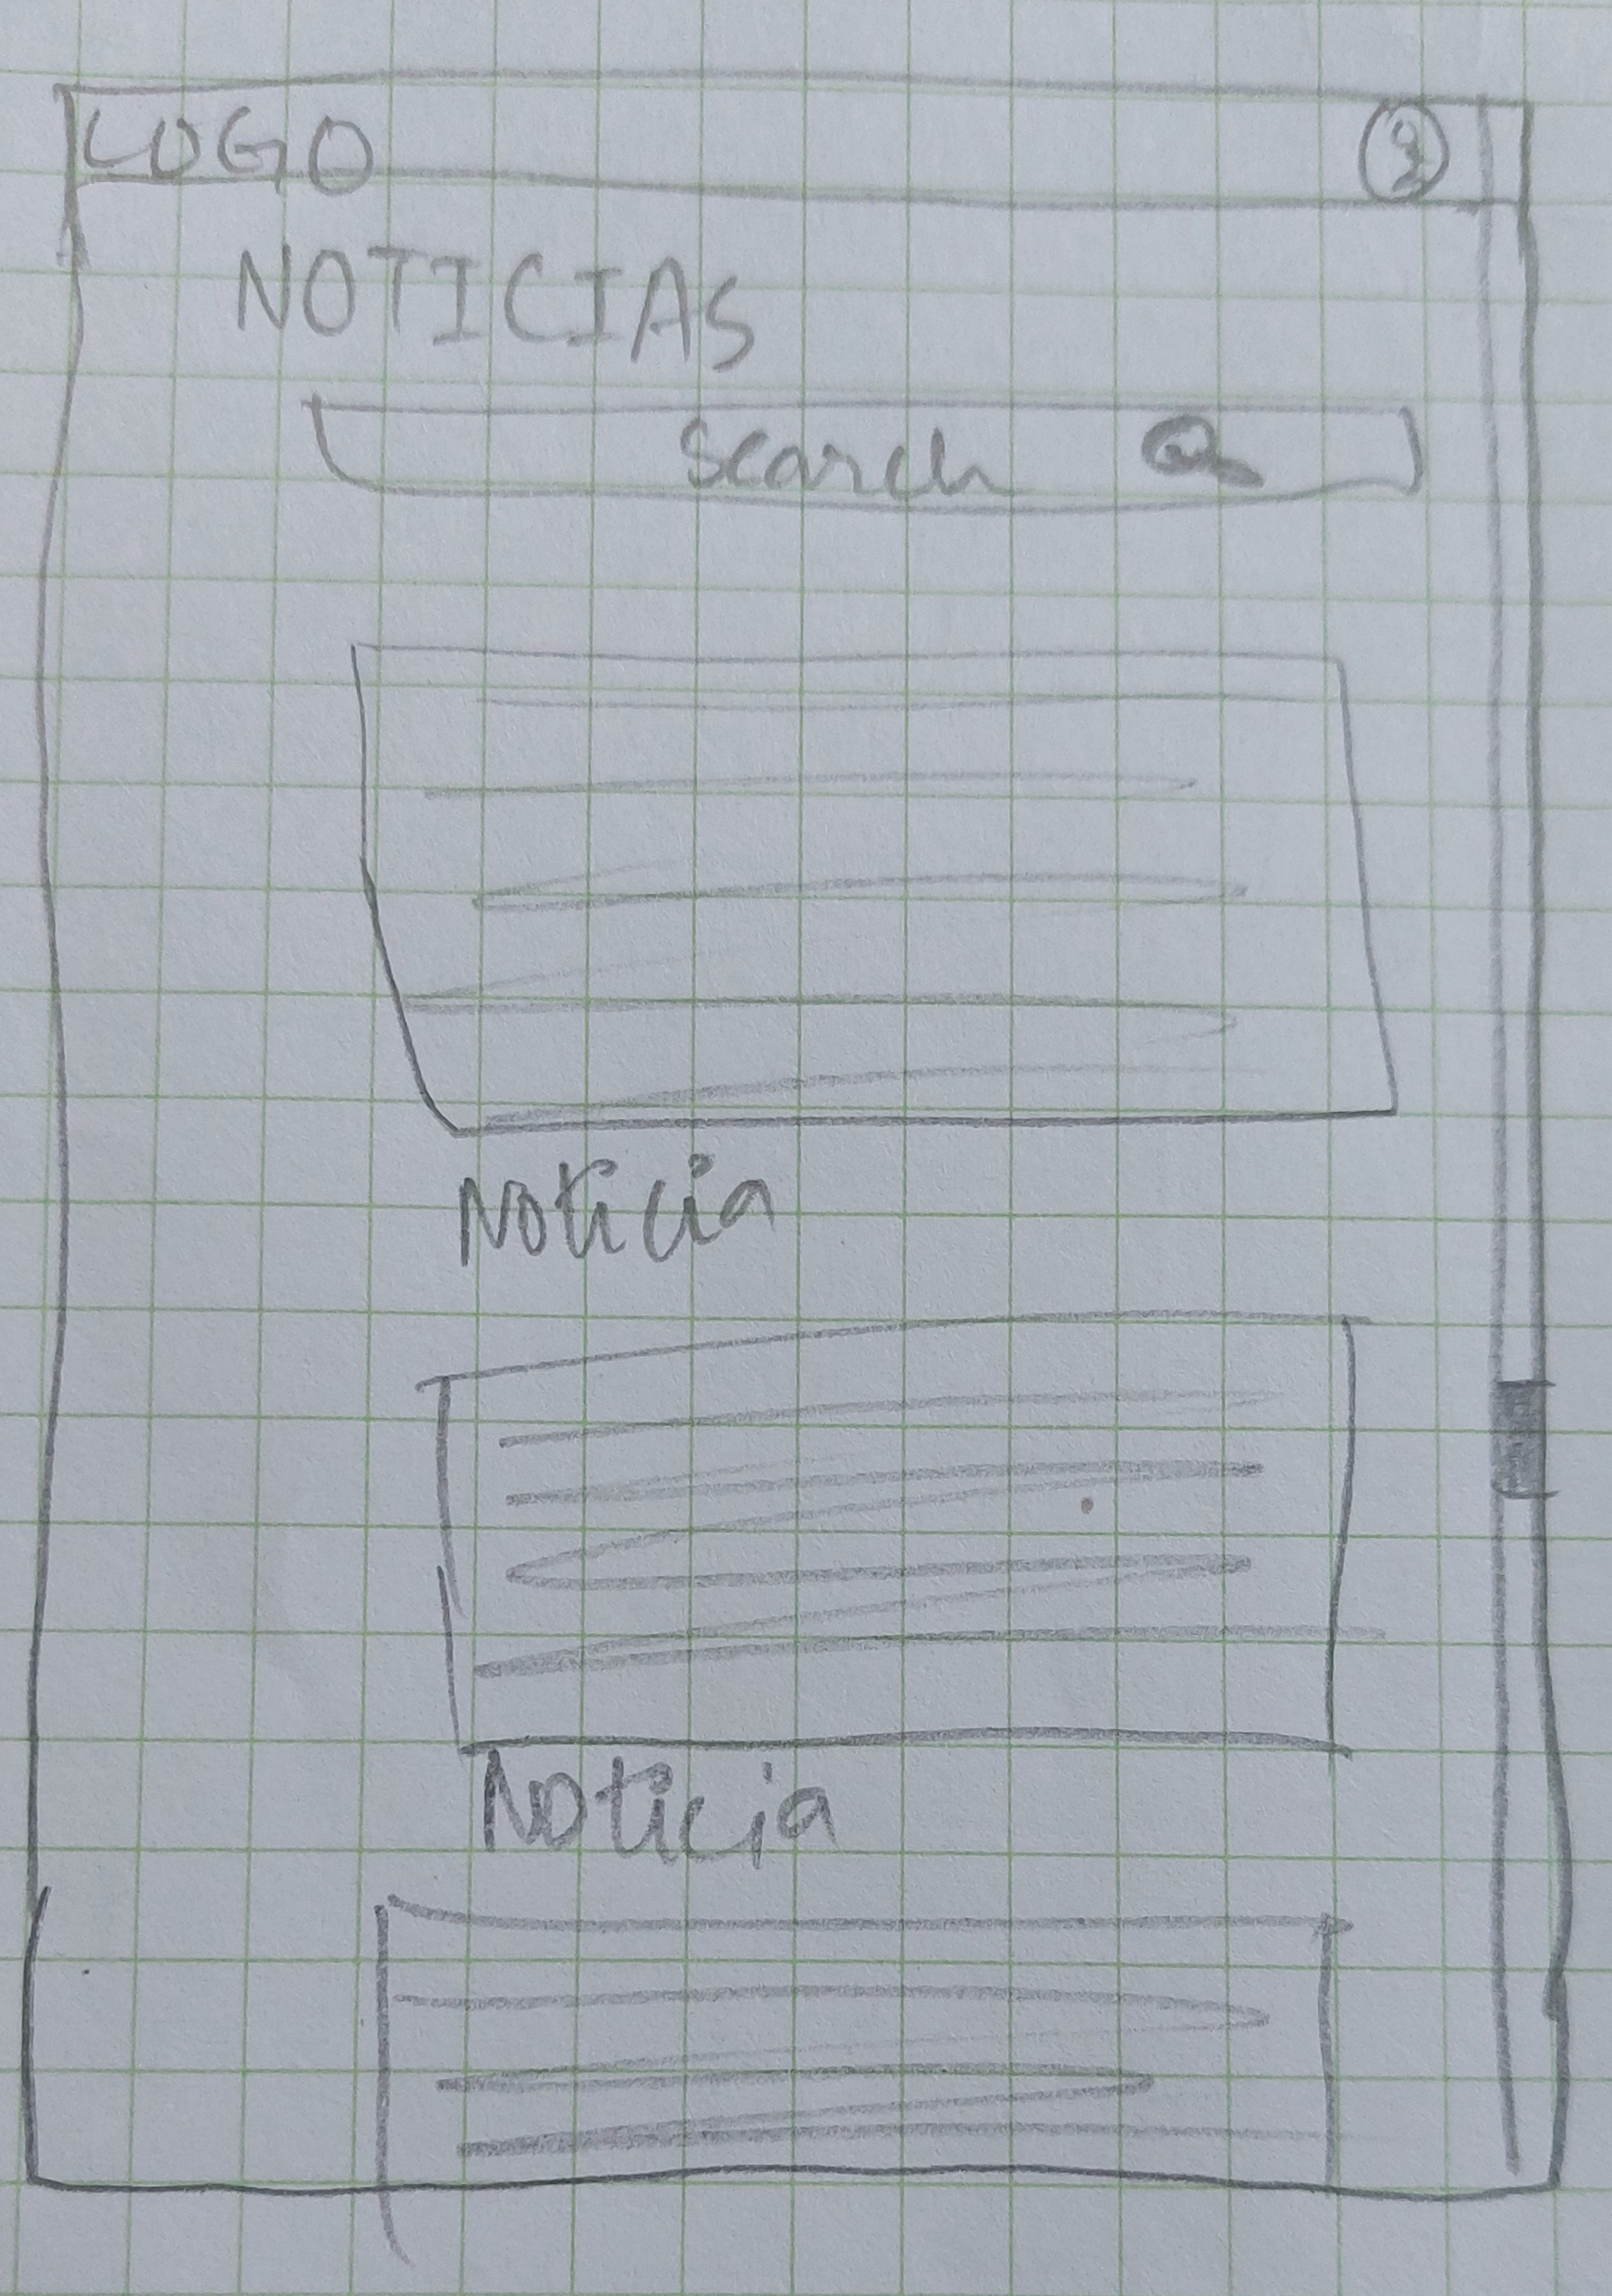 LOGO
NOTICIAS
Search
Noticia
Noticia